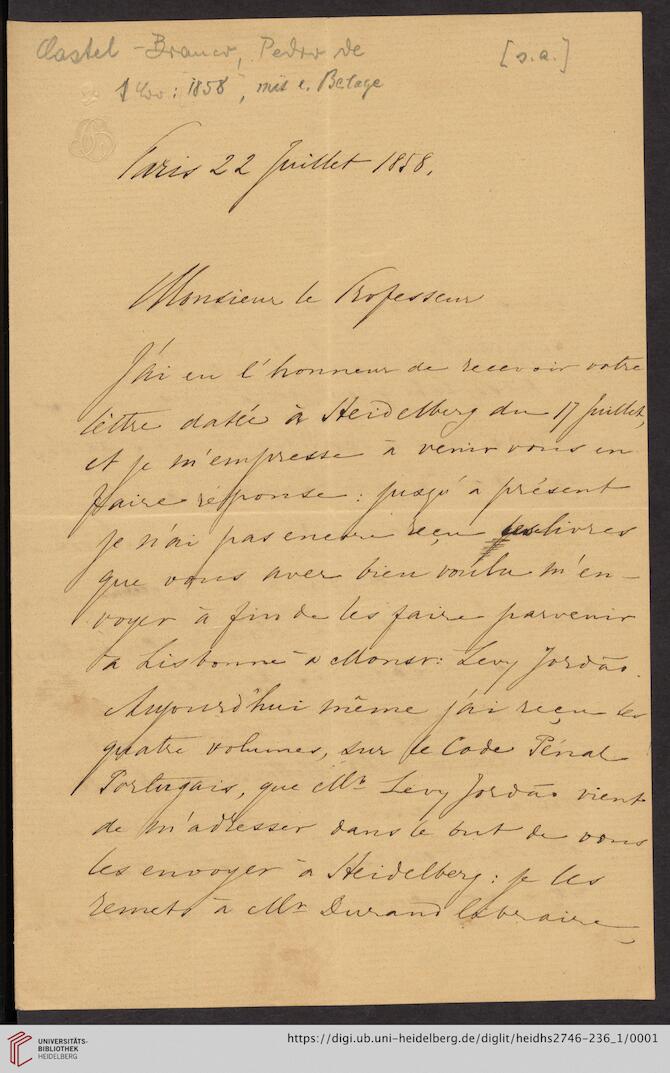 Castel-Branco, Pedro de
[s.a.]
1858, mit e. Beilage
Paris 22 Juillet 1858.
Monsieur le Professeur
J'ai eu l'honneur de recevoir votre
lettre datée à Heidelberg du 17 Juillet,
et je m'empresse à venir vous en
faire réponse : jusqu'à présent
je n'ai pas encore reçu les livres
que vous avez bien voulu m'en-
voyer à fin de les faire parvenir
à Lisbonne à Monsr: Levy Jordão.
Aujourd'hui même j'ai reçu les
quatre volumes, sur le Code Pénal
Portugais, que Mr Levy Jordão vient
de m'adresser dans le but de vous
les envoyer à Heidelberg : je les
remets à Mr Durand libraire,
UNIVERSITÄTS-
BIBLIOTHEK
HEIDELBERG
https://digi.ub.uni-heidelberg.de/diglit/heidhs2746-236_1/0001